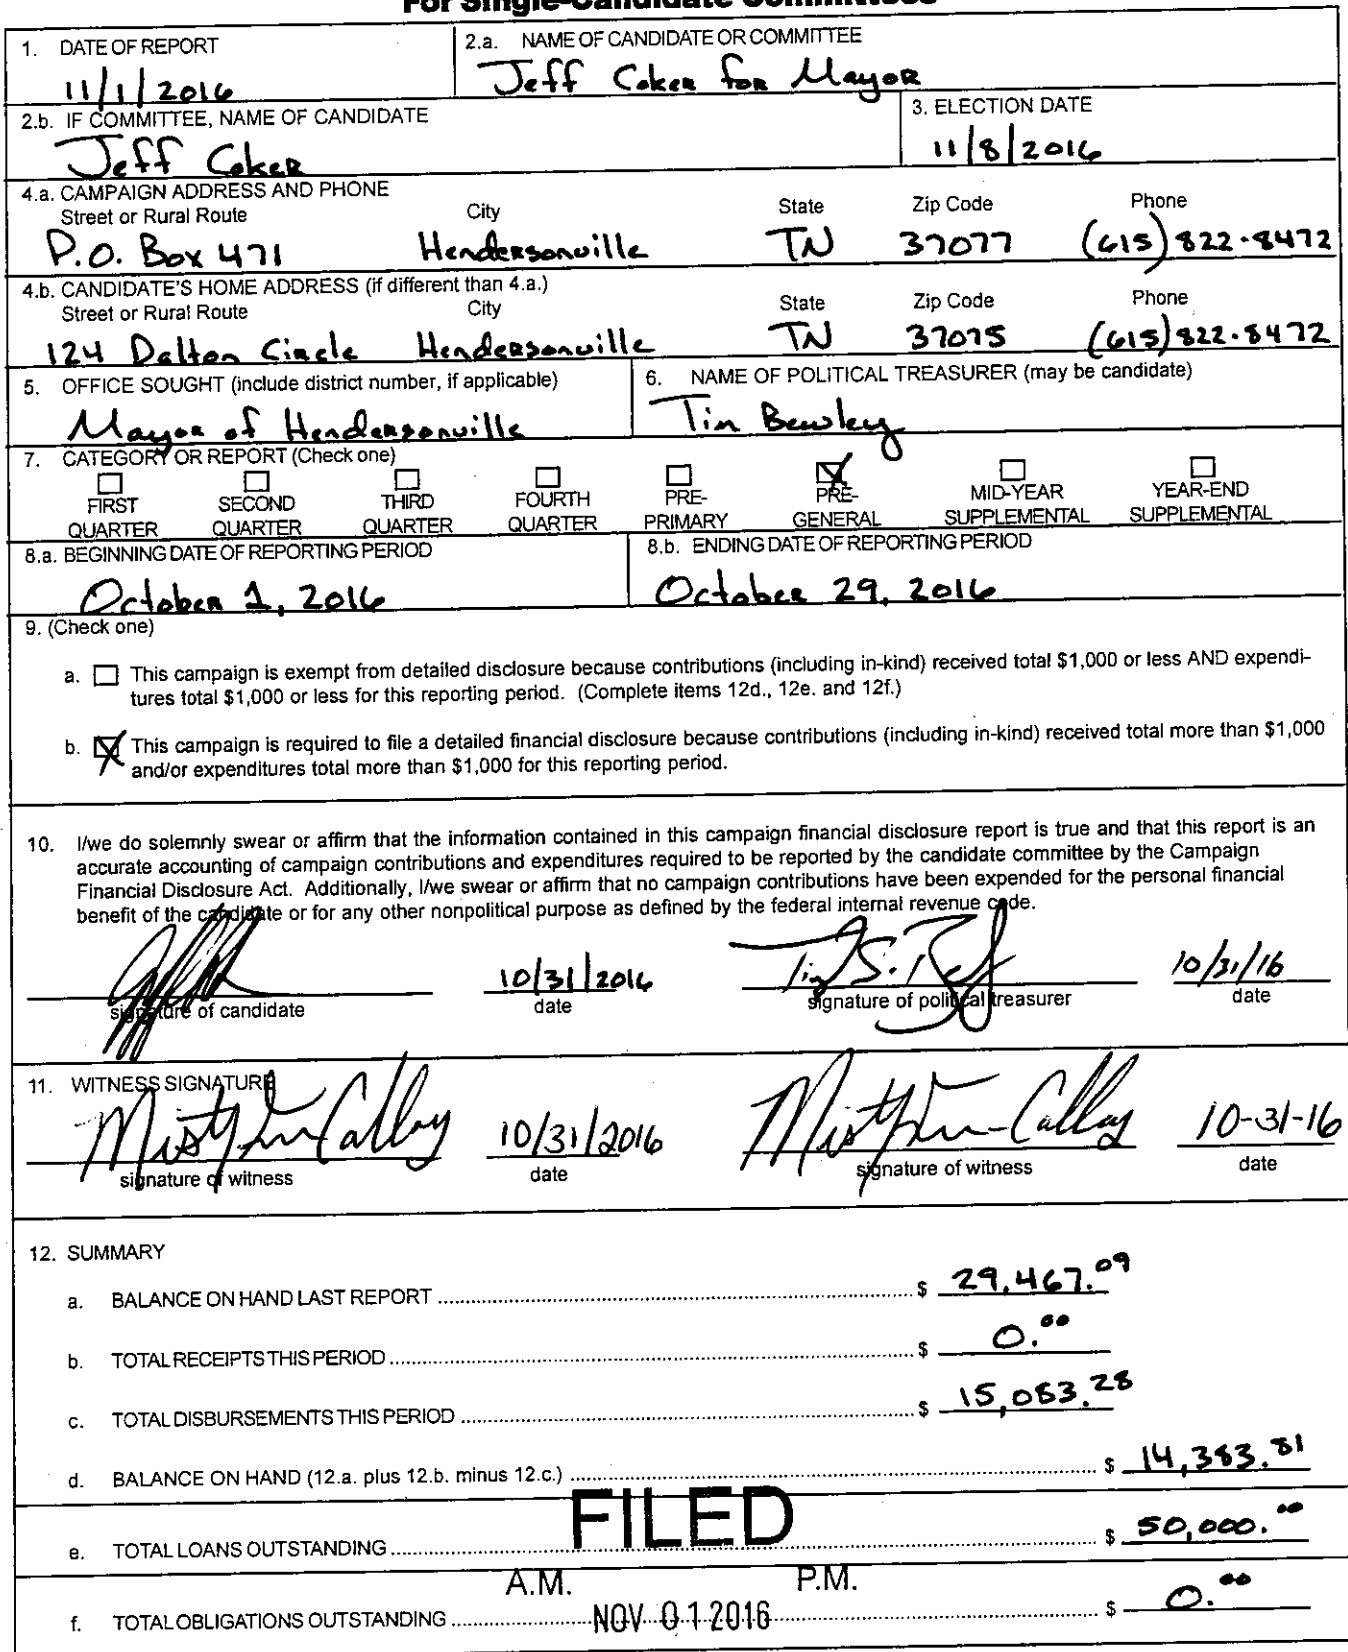 For Single-Candidate Committees
1. DATE OF REPORT
11/1/2016
2.a. NAME OF CANDIDATE OR COMMITTEE
Jeff Coker for Mayor
2.b. IF COMMITTEE, NAME OF CANDIDATE
Jeff Coker
3. ELECTION DATE
11/8/2016
4.a. CAMPAIGN ADDRESS AND PHONE
Street or Rural Route City State Zip Code Phone
P.O. Box 471 Hendersonville TN 37077 (615) 822-8472
4.b. CANDIDATE'S HOME ADDRESS (if different than 4.a.)
Street or Rural Route City State Zip Code Phone
124 Dalton Circle Hendersonville TN 37075 (615) 822-8472
5. OFFICE SOUGHT (include district number, if applicable)
Mayor of Hendersonville
6. NAME OF POLITICAL TREASURER (may be candidate)
Tim Bewley
7. CATEGORY OR REPORT (Check one)
FIRST SECOND THIRD FOURTH PRE- PRE- MID-YEAR YEAR-END
QUARTER QUARTER QUARTER QUARTER PRIMARY GENERAL SUPPLEMENTAL SUPPLEMENTAL
8.a. BEGINNING DATE OF REPORTING PERIOD
October 1, 2016
8.b. ENDING DATE OF REPORTING PERIOD
October 29, 2016
9. (Check one)
a. This campaign is exempt from detailed disclosure because contributions (including in-kind) received total $1,000 or less AND expendi-
tures total $1,000 or less for this reporting period. (Complete items 12d., 12e. and 12f.)
b. This campaign is required to file a detailed financial disclosure because contributions (including in-kind) received total more than $1,000
and/or expenditures total more than $1,000 for this reporting period.
10. I/we do solemnly swear or affirm that the information contained in this campaign financial disclosure report is true and that this report is an
accurate accounting of campaign contributions and expenditures required to be reported by the candidate committee by the Campaign
Financial Disclosure Act. Additionally, I/we swear or affirm that no campaign contributions have been expended for the personal financial
benefit of the candidate or for any other nonpolitical purpose as defined by the federal internal revenue code.
10/31/2016 10/31/16
signature of candidate date signature of political treasurer date
11. WITNESS SIGNATURE
10/31/2016 10-31-16
signature of witness date signature of witness date
12. SUMMARY
a. BALANCE ON HAND LAST REPORT $ 29,467.09
b. TOTAL RECEIPTS THIS PERIOD $ 0.00
c. TOTAL DISBURSEMENTS THIS PERIOD $ 15,083.28
d. BALANCE ON HAND (12.a. plus 12.b. minus 12.c.) $ 14,383.81
FILED
e. TOTAL LOANS OUTSTANDING $ 50,000.00
A.M. P.M.
f. TOTAL OBLIGATIONS OUTSTANDING $ 0.00
NOV 01 2016